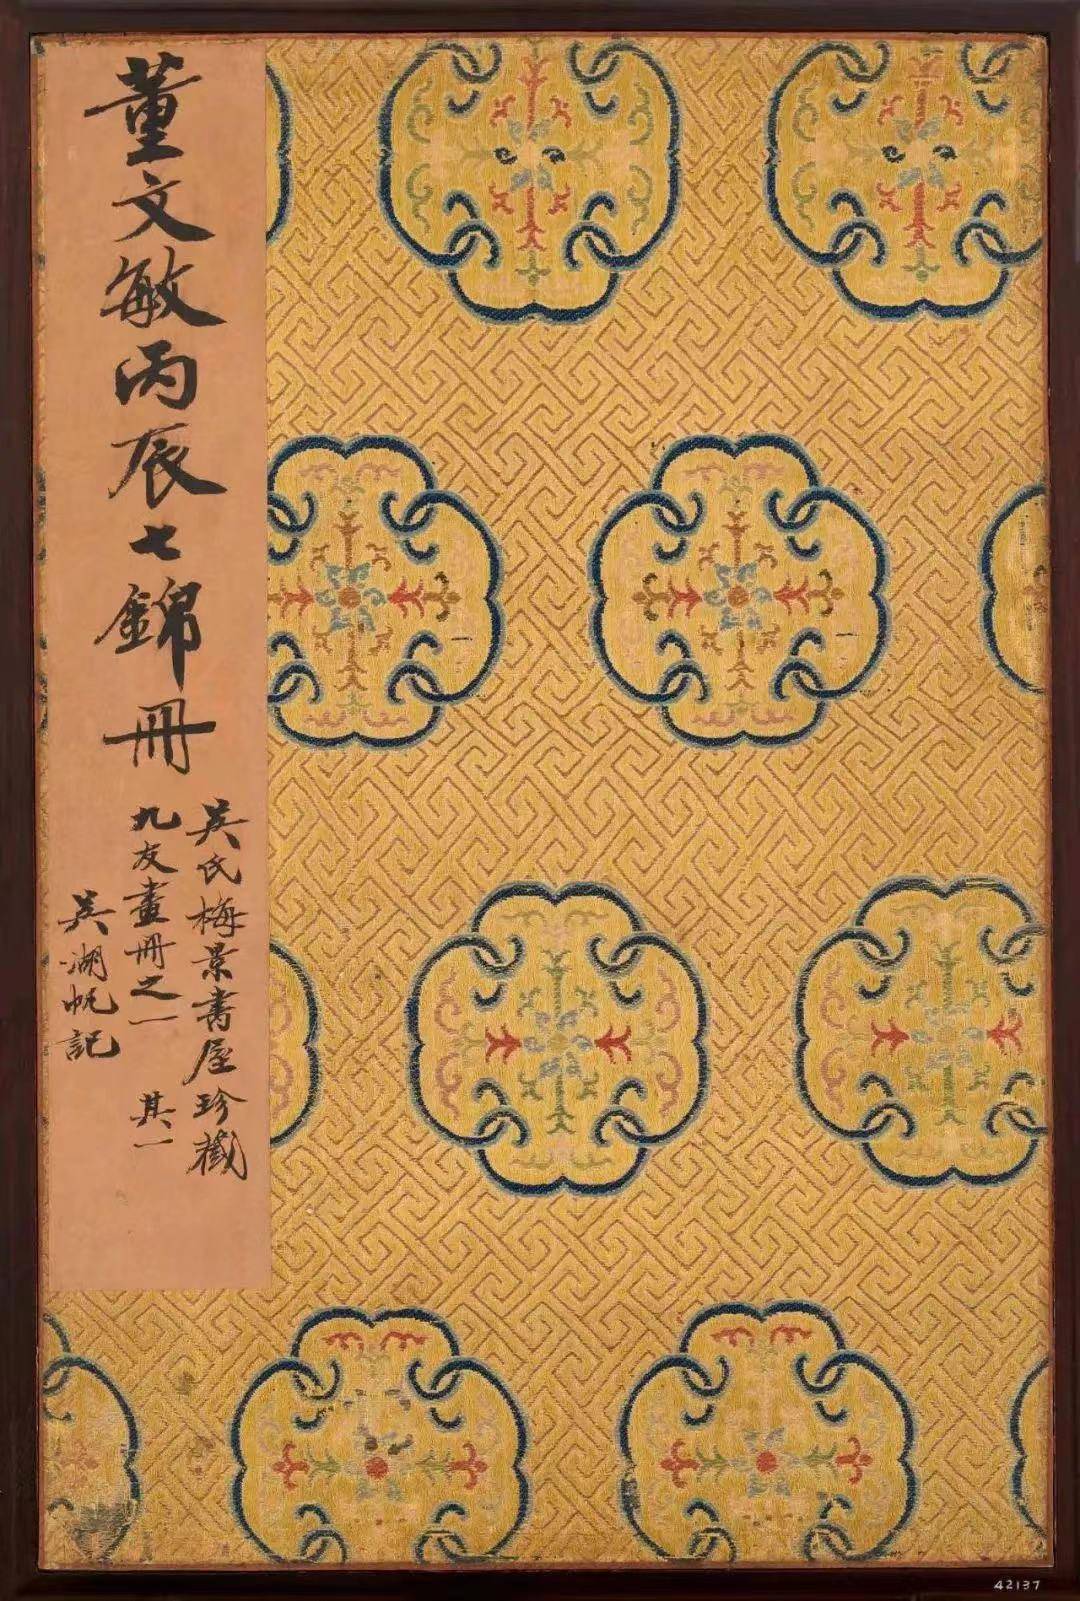 董文敏丙辰七錦冊
吳氏梅景書屋珍藏
九友畫冊之一 其一
吳湖帆記
42137